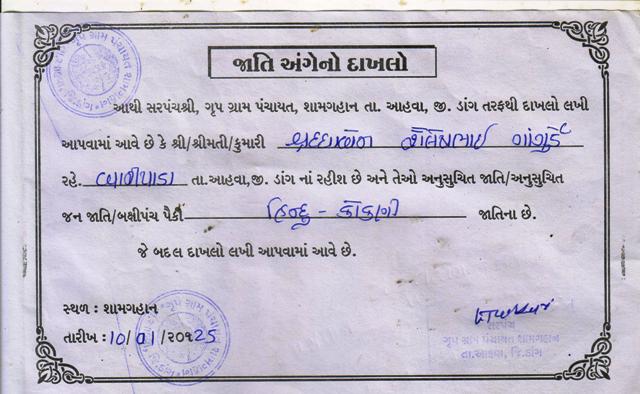 જાતિ અંગેનો દાખલો
આથી સરપંચશ્રી, ગૃપ ગ્રામ પંચાયત, શામગહાન તા. આહવા, જી. ડાંગ તરફથી દાખલો લખી
આપવામાં આવે છે કે શ્રી/શ્રીમતી/કુમારી શૈલેષભાઈ ગાંગુર્ડે
રહે. તા.આહવા,જી. ડાંગ નાં રહીશ છે અને તેઓ અનુસુચિત જાતિ/અનુસુચિત
જન જાતિ/બક્ષીપંચ પૈકી હિન્દુ - કોંકણી જાતિના છે.
જે બદલ દાખલો લખી આપવામાં આવે છે.
સ્થળ : શામગહાન
તારીખ : 10/01/૨૦૧25
સરપંચ
ગૃપ ગ્રામ પંચાયત શામગહાન
તા.આહવા, જિ.ડાંગ